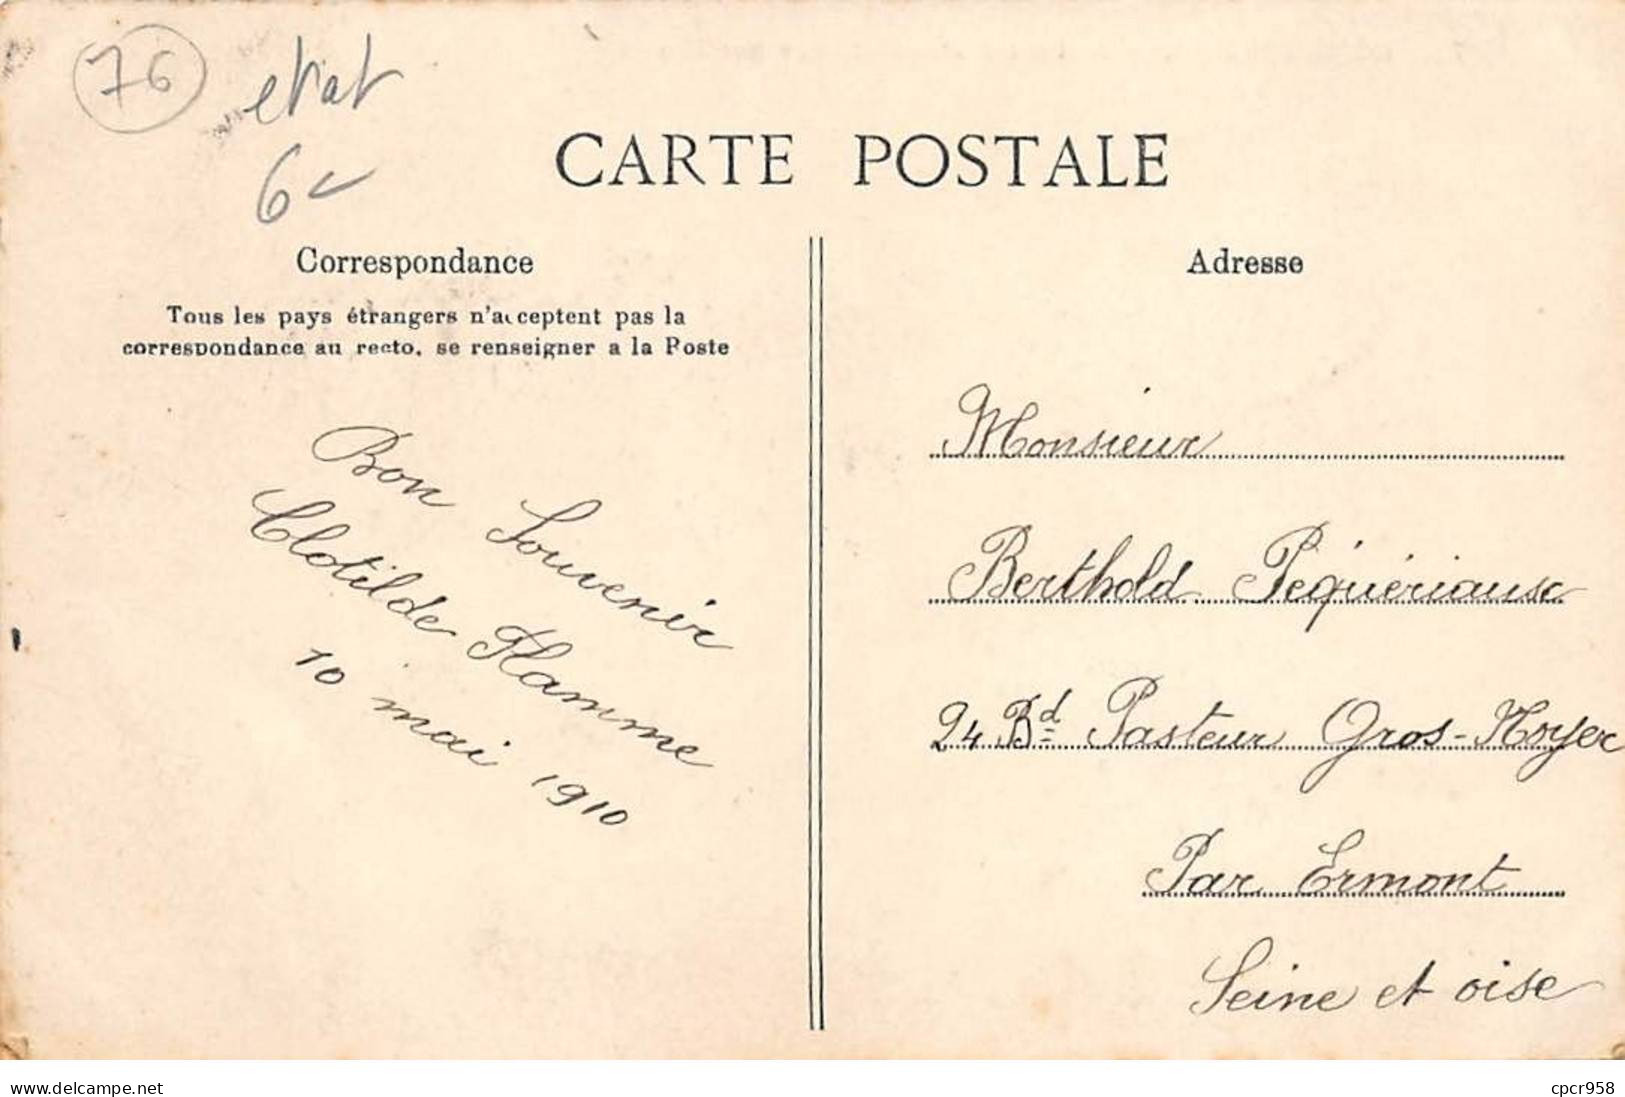 76
etat
6
CARTE POSTALE
Correspondance
Tous les pays étrangers n'acceptent pas la
correspondance au recto, se renseigner a la Poste
Bon Souvenir
Clotilde Flamme
10 mai 1910
Adresse
Monsieur
Berthold
24 Bd Pasteur Gros-Noyer
Par Ermont
Seine et oise
delcampe.net
cpcr958